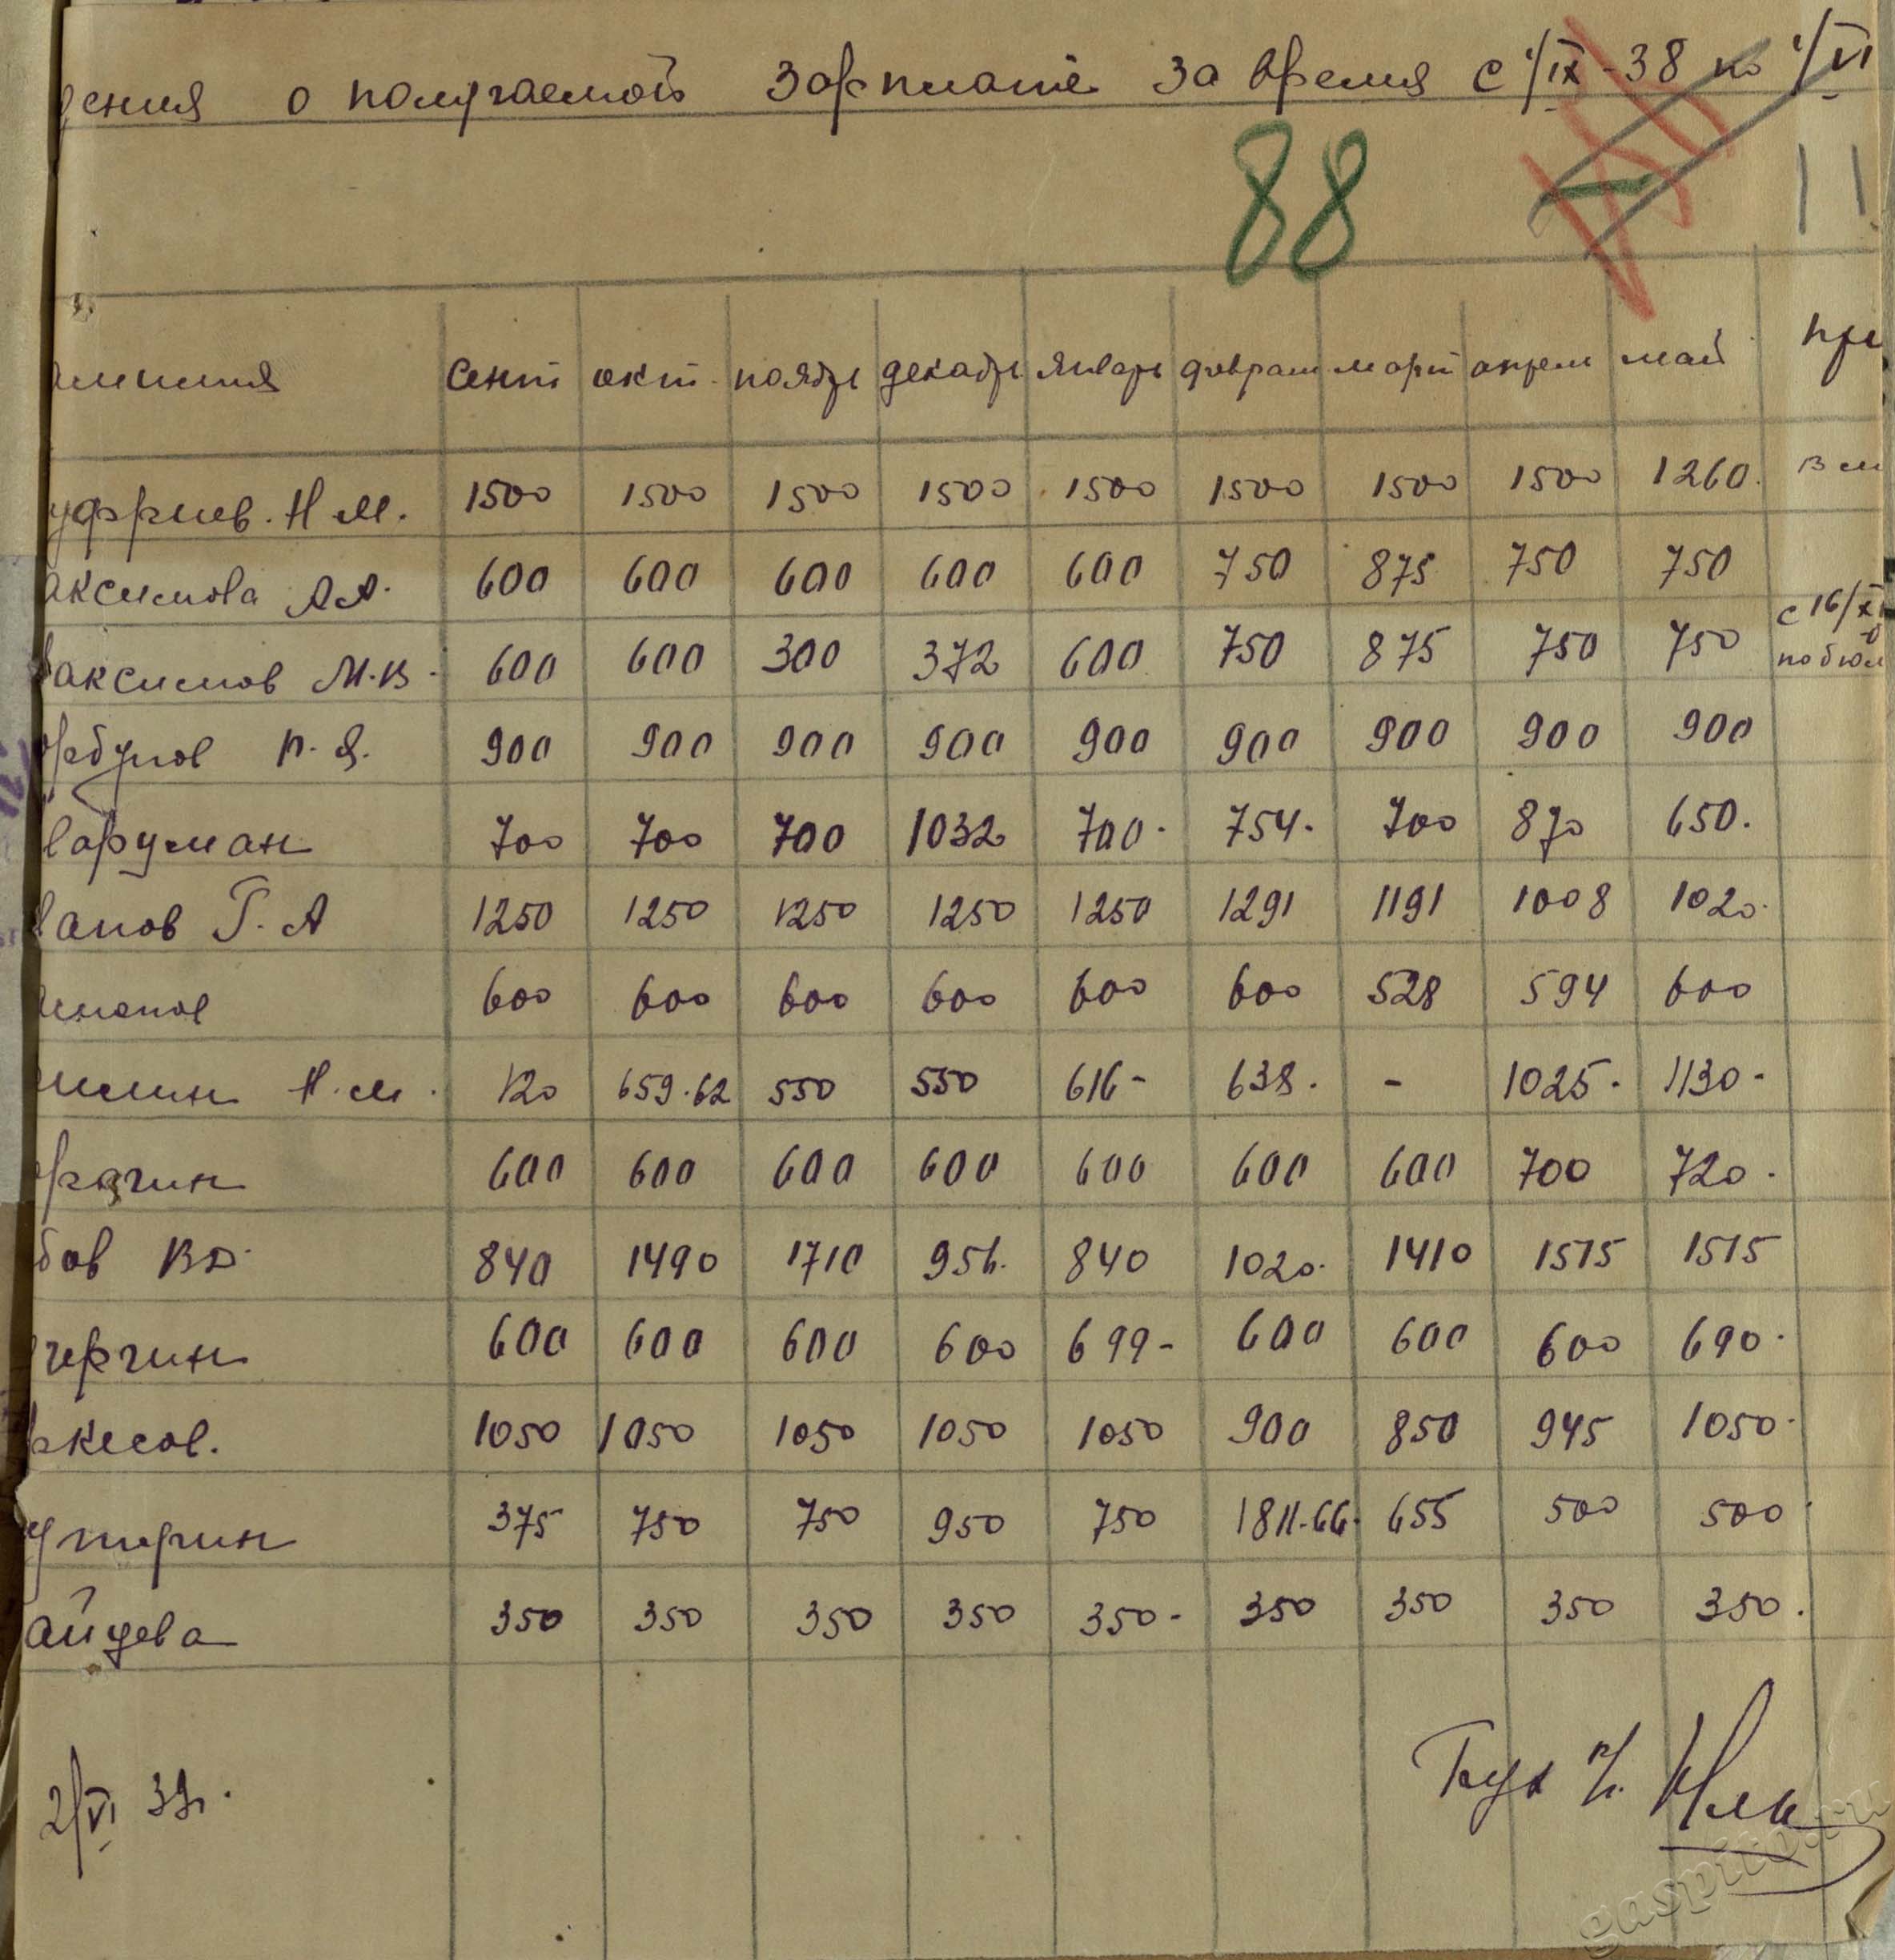 дения о получаемой зарплате за время с 1/IX-38 по 1/VI
88
11
амилия сент окт. ноябрь декабрь январь феврал март апрель май при
уфриев. Н М. 1500 1500 1500 1500 1500 1500 1500 1500 1260. в м
аксимова А А. 600 600 600 600 600 750 875 750 750
аксимов М. В. 600 600 300 372 600 750 875 750 750 с 16/XI по бюл
орбунов П. Я. 900 900 900 900 900 900 900 900 900
аруман 700 700 700 1032 700. 754. 700 870 650.
анов Г. А 1250 1250 1250 1250 1250 1291 1191 1008 1020.
600 600 600 600 600 600 528 594 600
Н. М. 120 659.62 550 550 616- 638. - 1025. 1130-
600 600 600 600 600 600 600 700 720.
бов ВД. 840 1490 1710 956. 840 1020. 1410 1515 1515
черчин 600 600 600 600 699- 600 600 600 690.
1050 1050 1050 1050 1050 900 850 945 1050.
утерин 375 750 750 950 750 1811.66. 655 500 500
айцева 350 350 350 350 350- 350 350 350 350.
2/VI 39г.
Бух
gaspito.ru